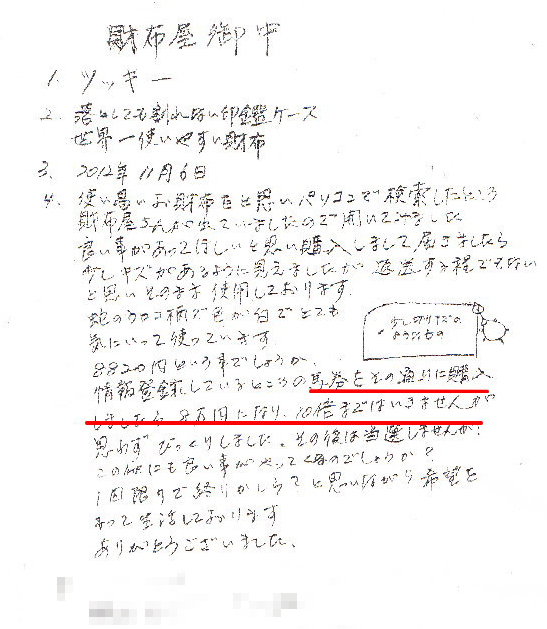 財布屋御中
1. ツッキー
2. 落としても割れない印鑑ケース
世界一使いやすい財布
3. 2012年11月6日
4. 使い易いお財布をと思いパソコンで検索したところ
財布屋さんが出ていましたので開いてみました
良い事があってほしいと思い購入しまして届きましたら
少しキズがあるように見えましたが返送する程でもない
と思いそのまま使用しております
蛇のウロコ柄で色が白でとても
気にいって使っています
少し切りキズの
ような物
8820円という事でしょうか、
情報登録しているところの馬券をその通りに購入
しましたら8万円になり、10倍まではいきませんが
思わずびっくりしました。その後は当選しませんが!
この他にも良い事がやって くるのでしょうか?
1回限りで終りかしら?と思いながら希望を
もって生活しております
ありがとうございました、